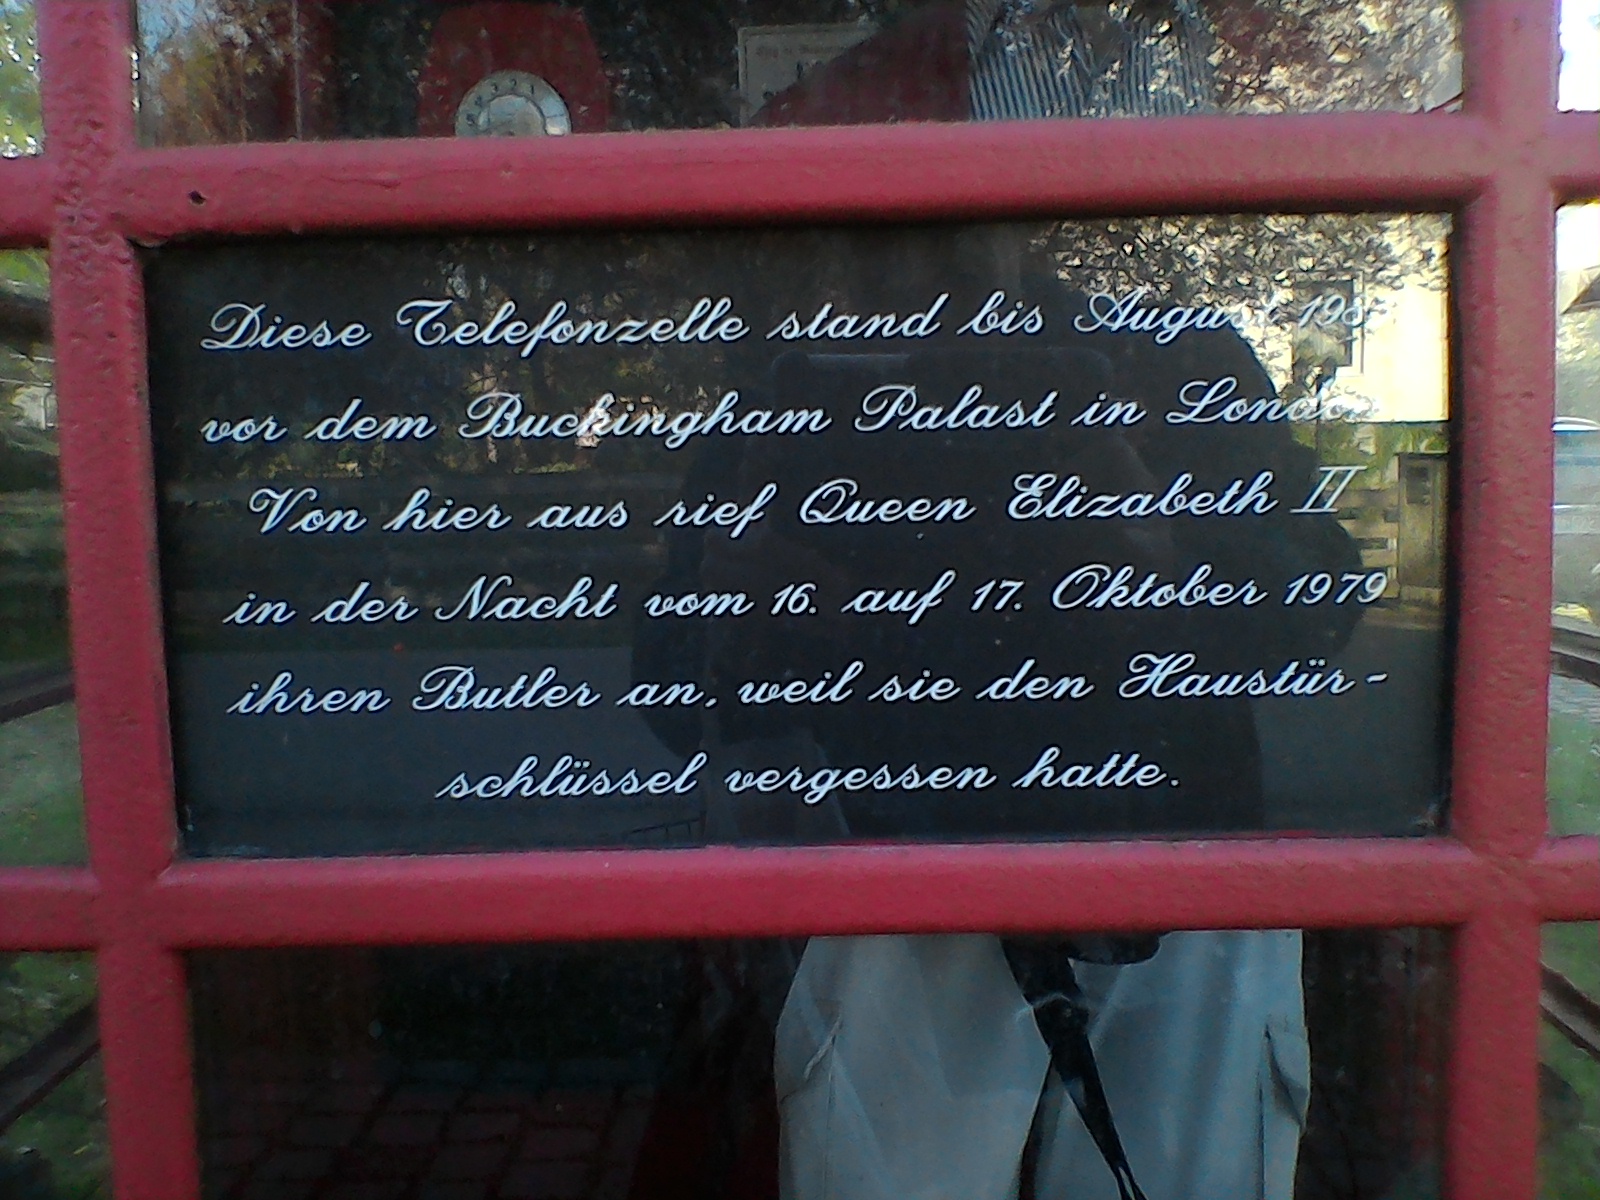 Diese Telefonzelle stand bis August
vor dem Buckingham Palast in London
Von hier aus rief Queen Elizabeth II
in der Nacht vom 16. auf 17. Oktober 1979
ihren Butler an, weil sie den Haustür-
schlüssel vergessen hatte.